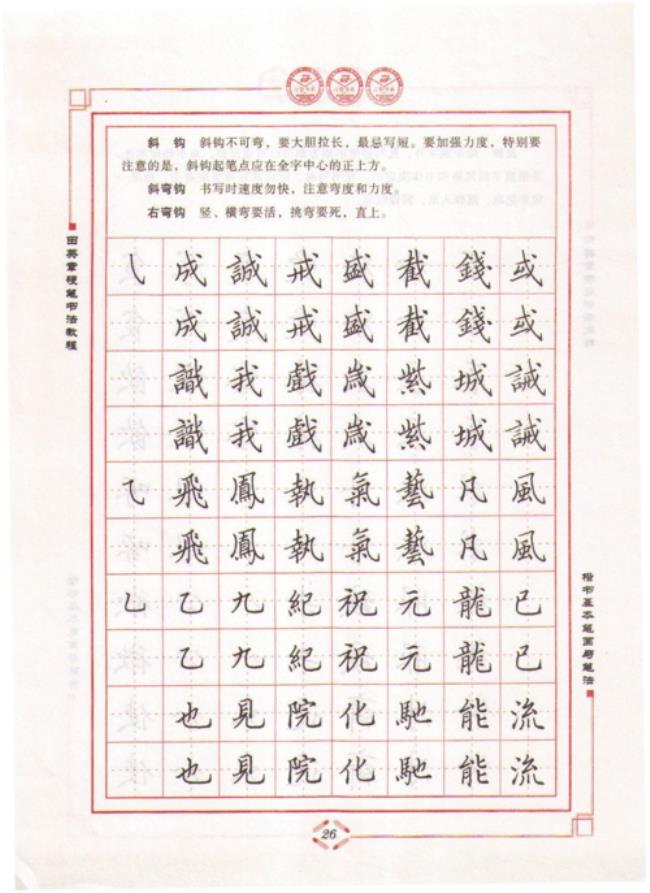 斜 钩 斜钩不可弯，要大胆拉长，最忌写短。要加强力度，特别要
注意的是，斜钩起笔点应在全字中心的正上方。
斜弯钩 书写时速度勿快，注意弯度和力度。
右弯钩 竖、横弯要活，挑弯要死，直上。
田英章硬笔书法教程
㇂ 成 誠 戒 盛 截 錢 或
成 誠 戒 盛 截 錢 或
識 我 戲 歲 紫 城 誡
識 我 戲 歲 紫 城 誡
⺄ 飛 鳳 執 氣 藝 凡 風
飛 鳳 執 氣 藝 凡 風
乚 乙 九 紀 祝 元 龍 已
乙 九 紀 祝 元 龍 已
也 見 院 化 馳 能 流
也 見 院 化 馳 能 流
楷书基本笔画与笔法
26